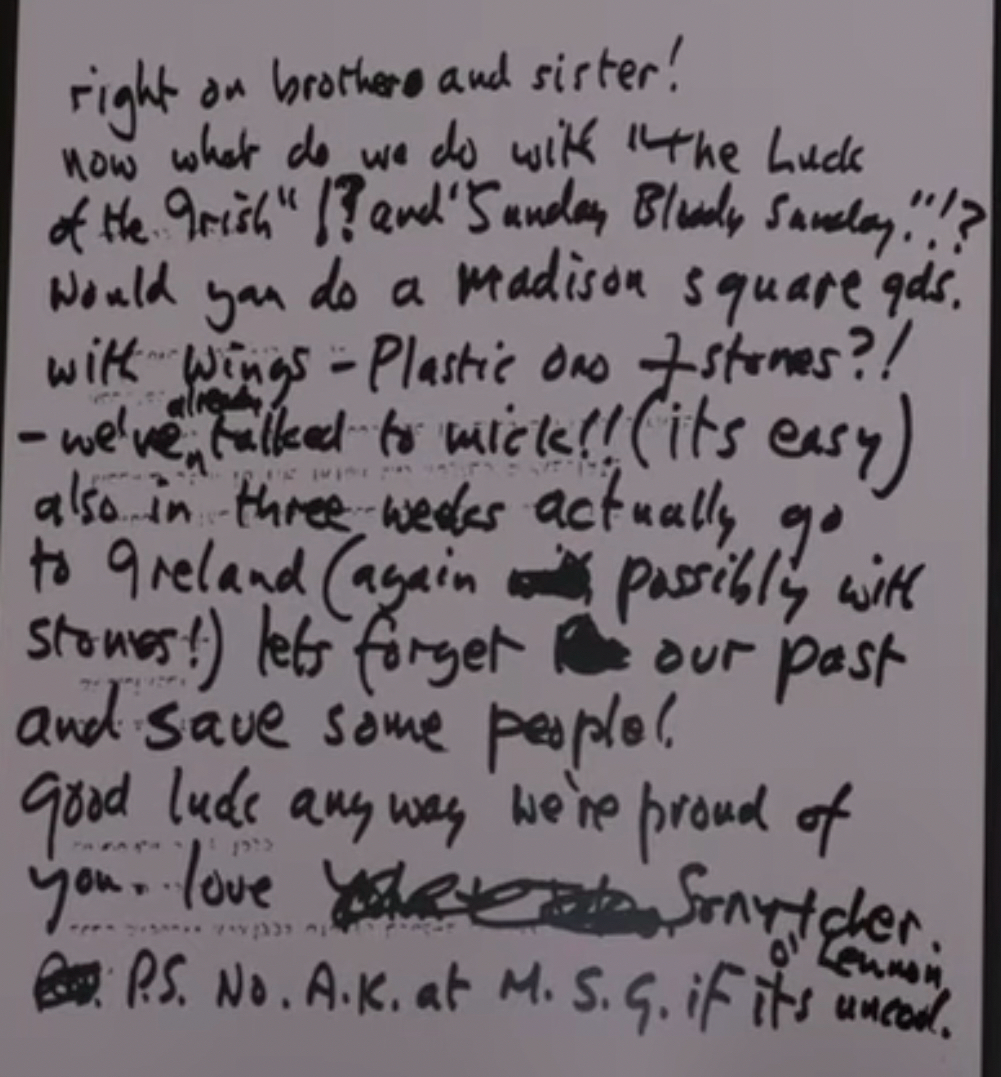 right on brothers and sister!
now what do we do with "The Luck
of the Irish" !? and "Sunday Bloody Sunday."!!?
Would you do a Madison square gds.
with Wings - Plastic Ono + stones?!
already
- we've talked to mick!! (its easy)
also in three weeks actually go
to Ireland (again possibly with
stones!) lets forget our past
and save some people!
Good luck anyway we're proud of
you. love Sonny + cher.
o' Lennon
P.S. No. A.K. at M.S.G. if its uncool.